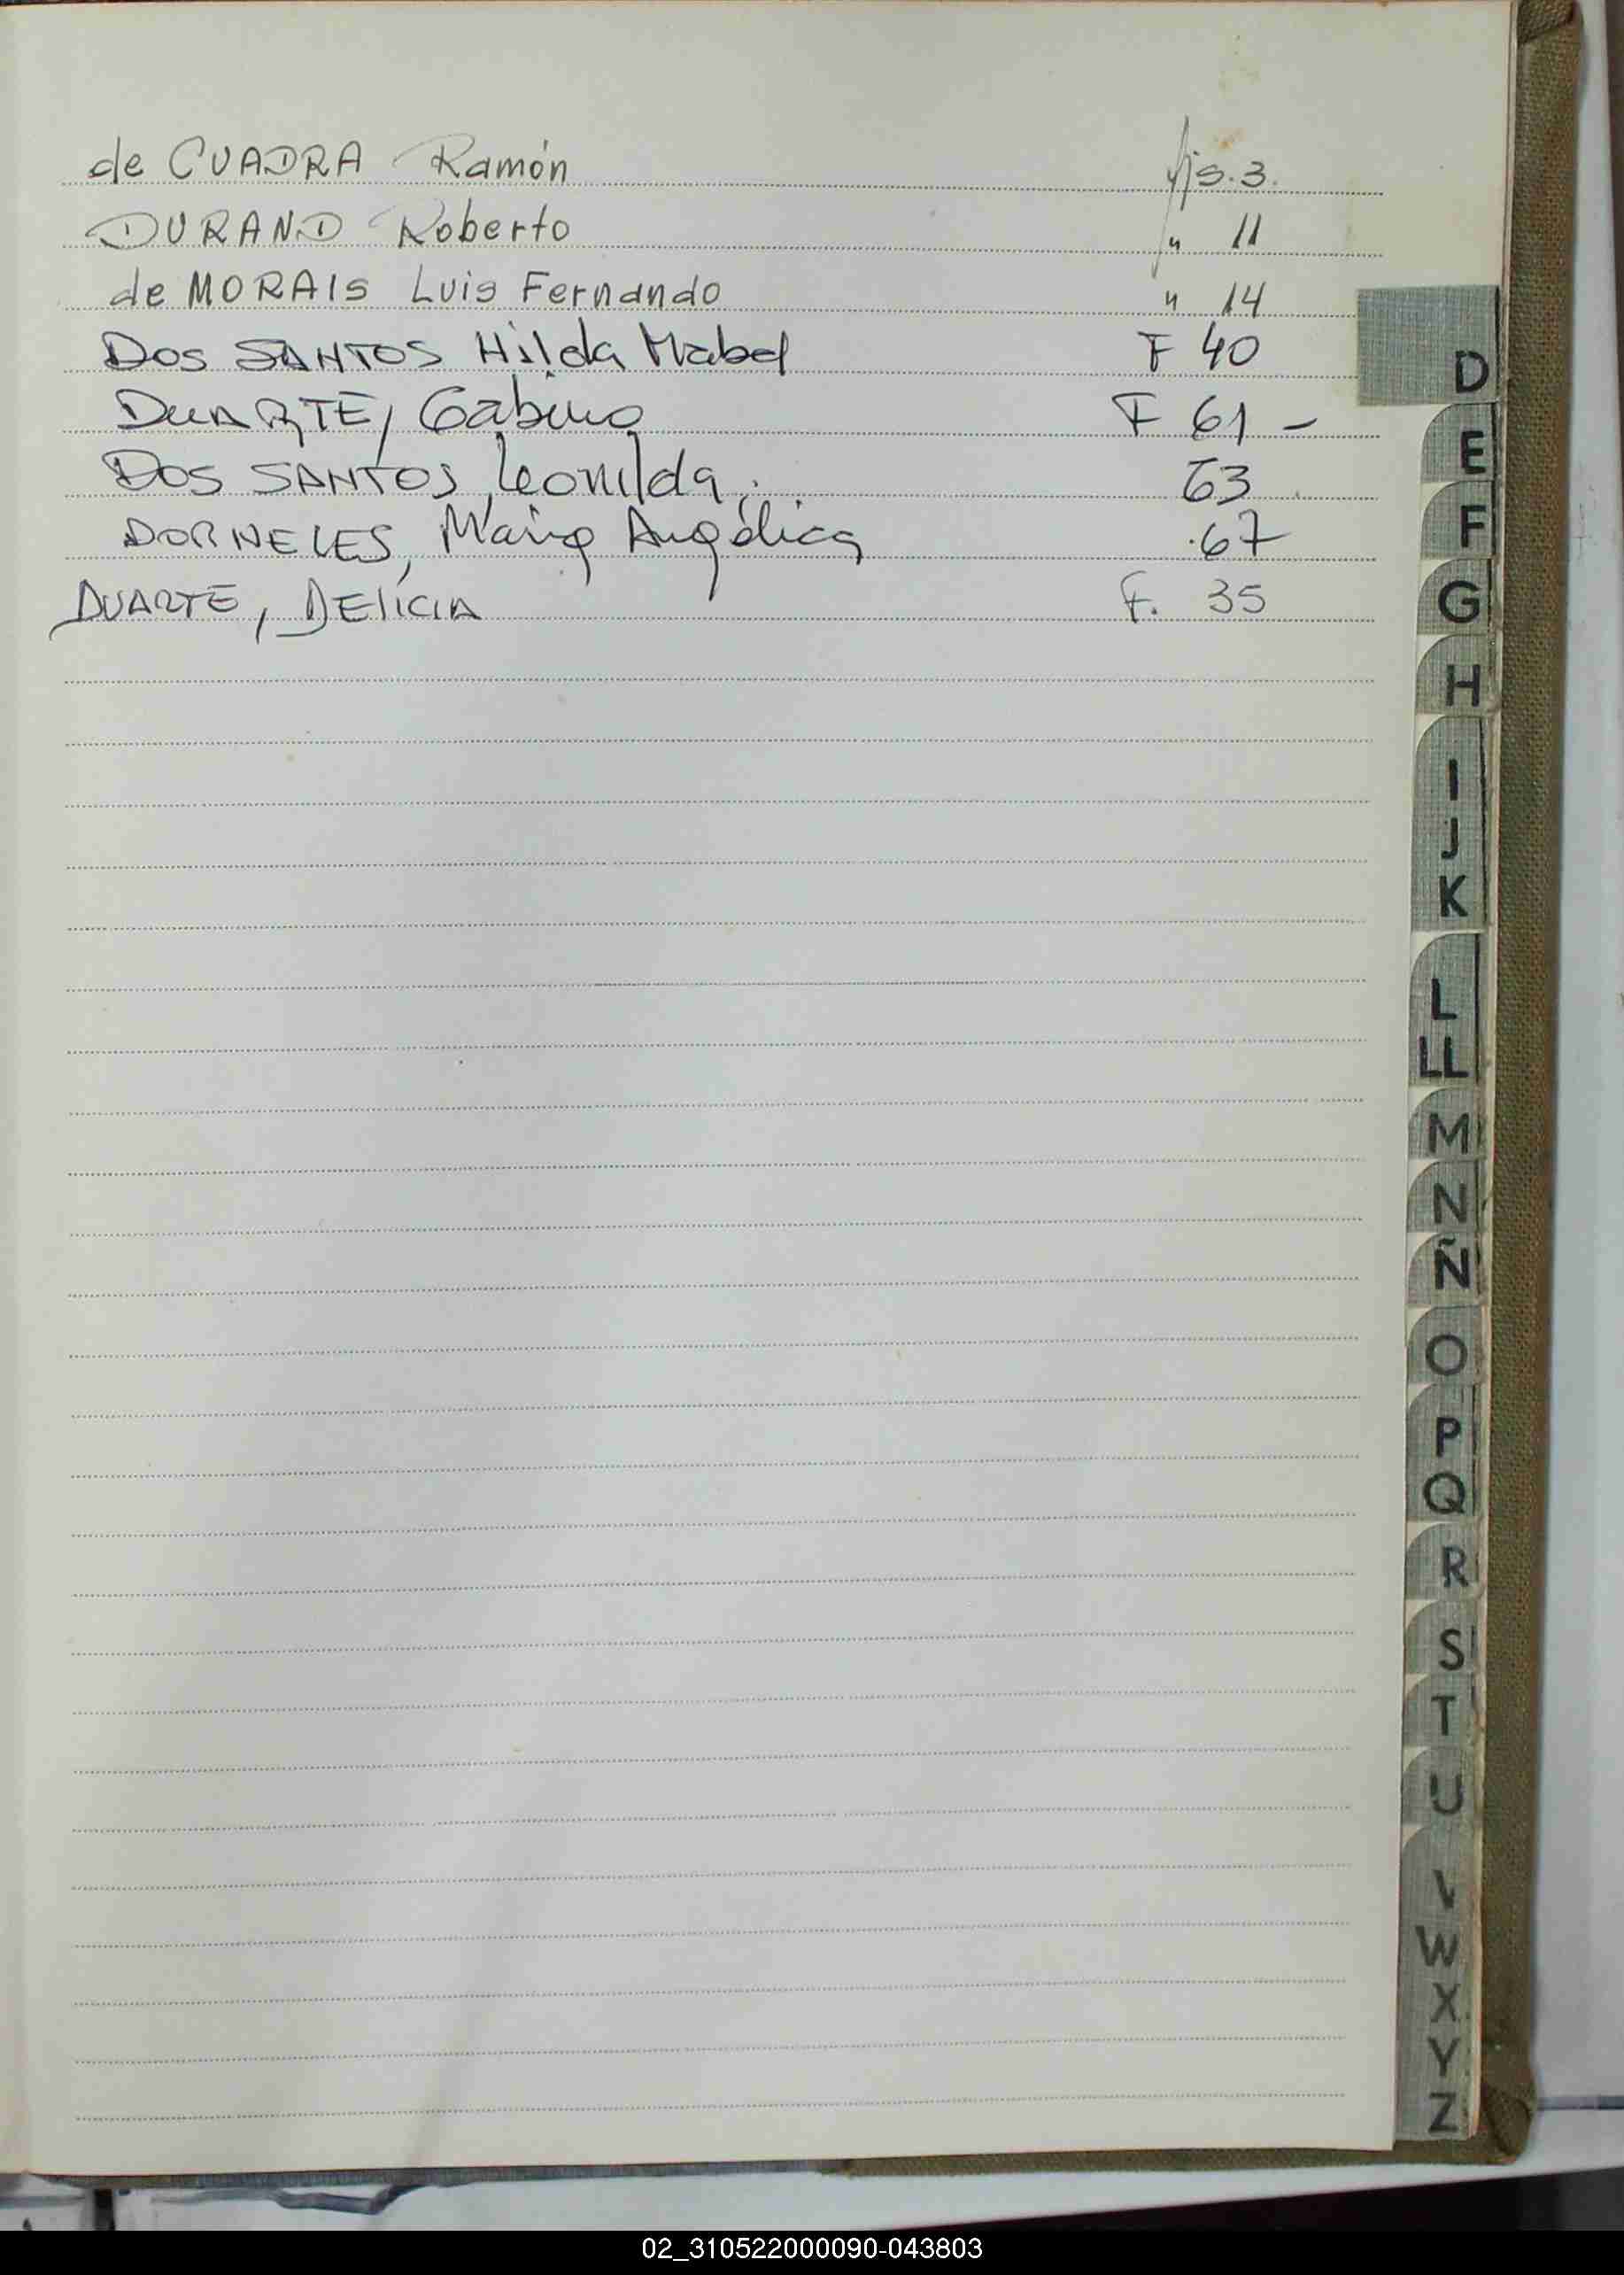 de CUADRA Ramón fjs. 3.
DURAND Roberto " 11
de MORAIS Luis Fernando " 14
DOS SANTOS Hilda Mabel F 40
DUARTE, Gabino F 61 -
DOS SANTOS, Leonilda. 63
DORNELES, María Angélica 67
DUARTE, DELICIA F. 35
D
E
F
G
H
I
J
K
L
LL
M
N
Ñ
O
P
Q
R
S
T
U
V
W
X
Y
Z
02_310522000090-043803